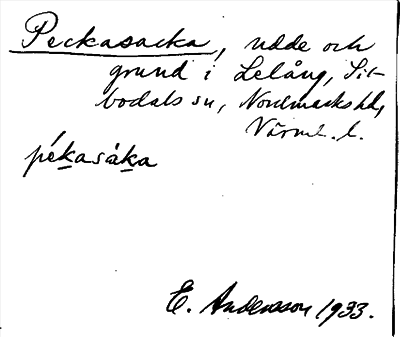 Peckasacka, udde och
grund i Lelång, Sil-
bodals sn, Nordmarks hd,
Värml. l.
pékasáka
E. Andersson 1933.